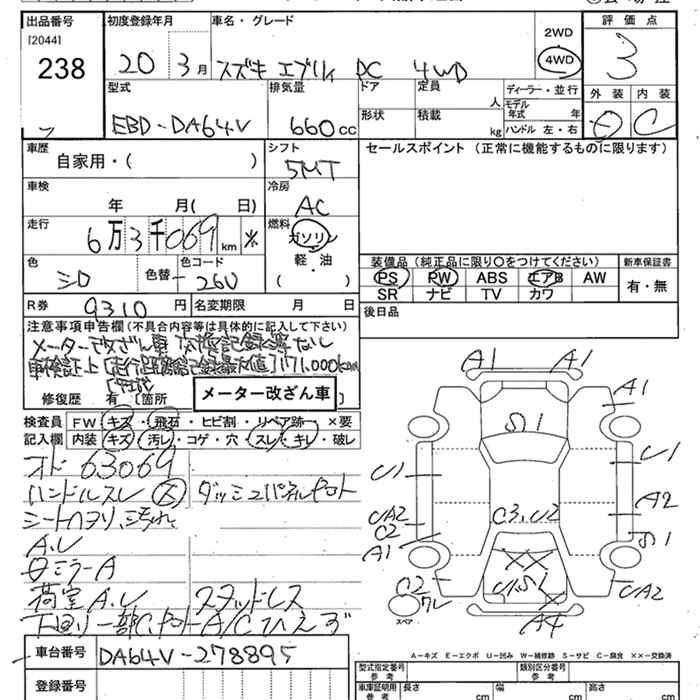 出品番号
[2044]
238
初度登録年月
20 3月
車名・グレード
スズキ エブリィ PC 4WD
2WD
4WD
評価点
3
型式
EBD-DA64V
排気量
660cc
ドア
定員
人
ディーラー・並行
モデル年式 年
形状
積載
kg
ハンドル 左・右
外装
内装
C
車歴
自家用・( )
シフト
5MT
セールスポイント (正常に機能するものに限ります)
車検
年 月( 日)
冷房
AC
走行
6万3千069km ※
燃料
ガソリン
軽・油
( )
色
シロ
色替
色コード
26U
装備品 (純正品に限り○をつけてください)
PS PW ABS エアB AW
SR ナビ TV カワ
新車保証書
有・無
R券
9310円
名変期限 月 日
後日品
注意事項申告欄 (不具合内容等は具体的に記入して下さい)
メーター改ざん車 交換記録簿なし
車検証上 [走行距離記録最大値] 171,000km
修復歴 有 [箇所
メーター改ざん車
検査員記入欄
FW キズ・飛石・ヒビ割・リペア跡 ×要
内装 キズ・汚レ・コゲ・穴・スレ・キレ・破レ
オド 63069
ハンドルスレ ダッシュパネルヤケ
シートヘタリ、汚れ
A.U
ミラーA
荷室 A.U スタッドレス
下回り一部C. A/Cひえず
車台番号
DA64V-278895
登録番号
A1
A1
A1
U1
U1
UA2
C2
A1
A2
S1
C3, U2
UA2
C2
ワレ
スペア
A4
A-キズ E-エクボ U-凹み W-補修跡 S-サビ C-腐食 ××-交換済
型式指定番号
参考
類別区分番号
参考
車庫証明用
参考
長さ
cm
幅
cm
高さ
cm